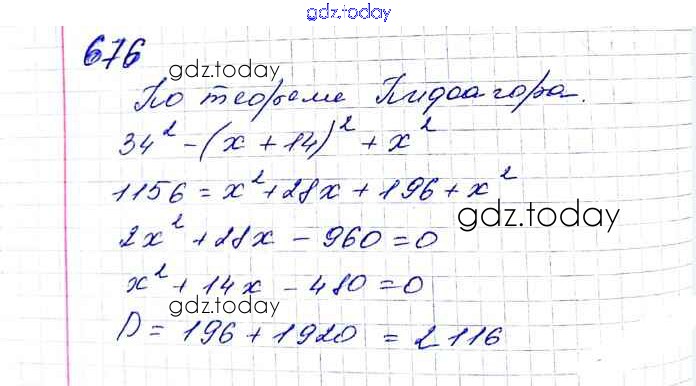 gdz.today
676
gdz.today
По теореме Пифагора.
34² - (x + 14)² + x²
1156 = x² + 28x + 196 + x²
gdz.today
2x² + 28x - 960 = 0
x² + 14x - 480 = 0
gdz.today
D = 196 + 1920 = 2116